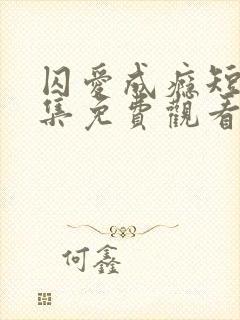 囚愛成癮短
集免費觀看
何鑫